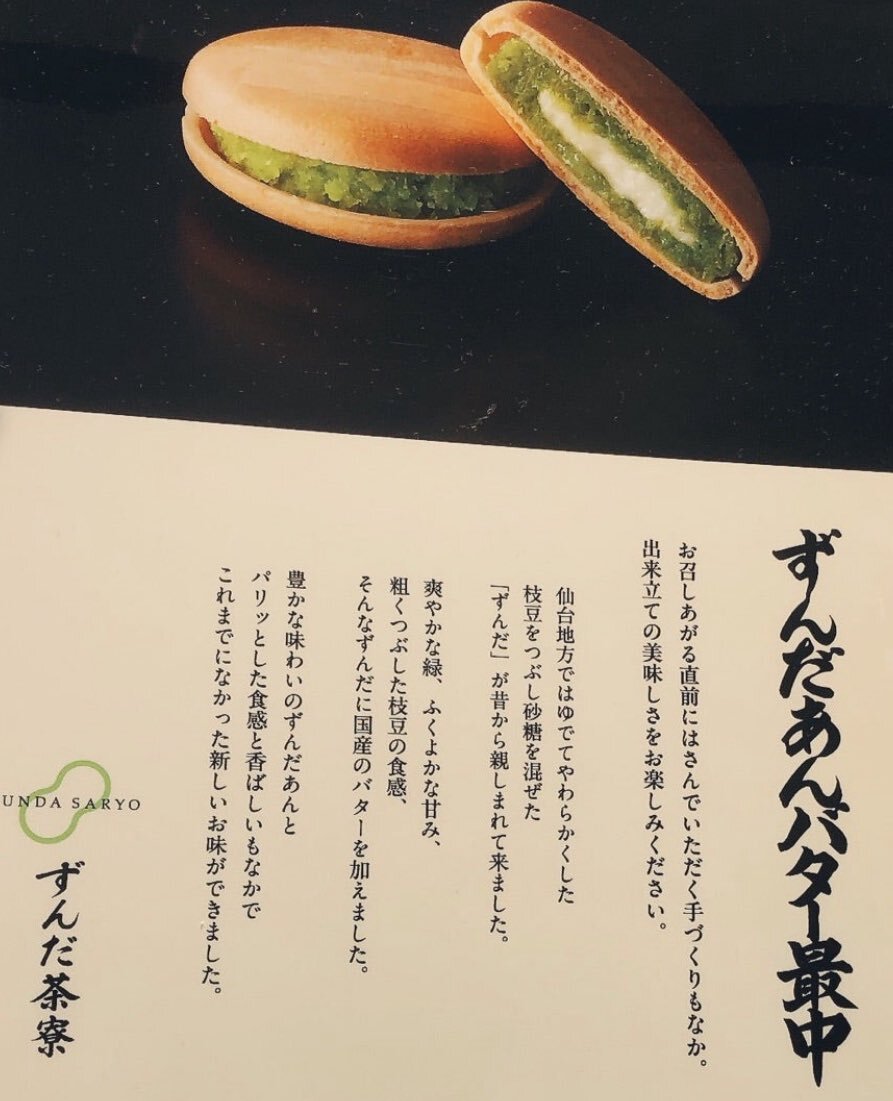 ずんだあんバター最中
お召しあがる直前にはさんでいただく手づくりもなか。
出来立ての美味しさをお楽しみください。
仙台地方ではゆでてやわらかくした
枝豆をつぶし砂糖を混ぜた
「ずんだ」が昔から親しまれて来ました。
爽やかな緑、ふくよかな甘み、
粗くつぶした枝豆の食感、
そんなずんだに国産のバターを加えました。
豊かな味わいのずんだあんと
パリッとした食感と香ばしいもなかで
これまでになかった新しいお味ができました。
UNDA SARYO
ずんだ茶寮